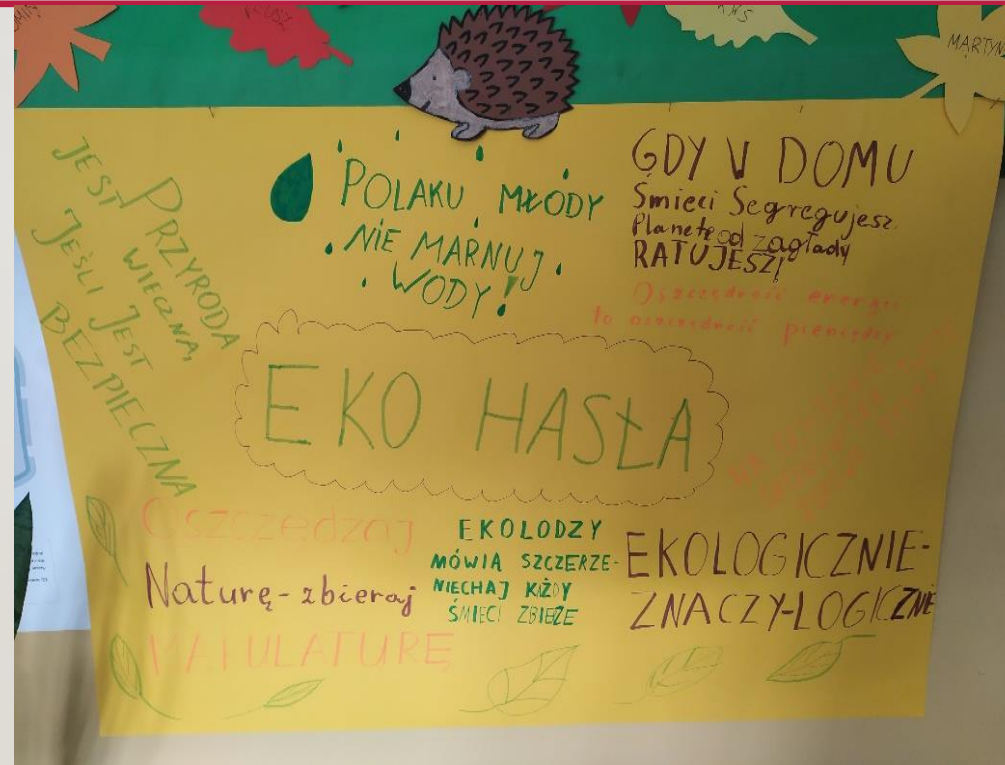 MARTYN
PRZYRODA
JEST WIECZNA,
JEŚLI JEST
BEZPIECZNA
POLAKU MŁODY
NIE MARNUJ
WODY!
GDY W DOMU
Śmieci Segregujesz.
Planetę od zagłady
RATUJESZ!
Oszczędność energii
to oszczędność pieniędzy
EKO HASŁA
Oszczędzaj
Naturę - zbieraj
MAKULATURĘ
EKOLODZY
MÓWIĄ SZCZERZE-
NIECHAJ KAŻDY
ŚMIECI ZBIEŻE
EKOLOGICZNIE-
ZNACZY-LOGICZNIE